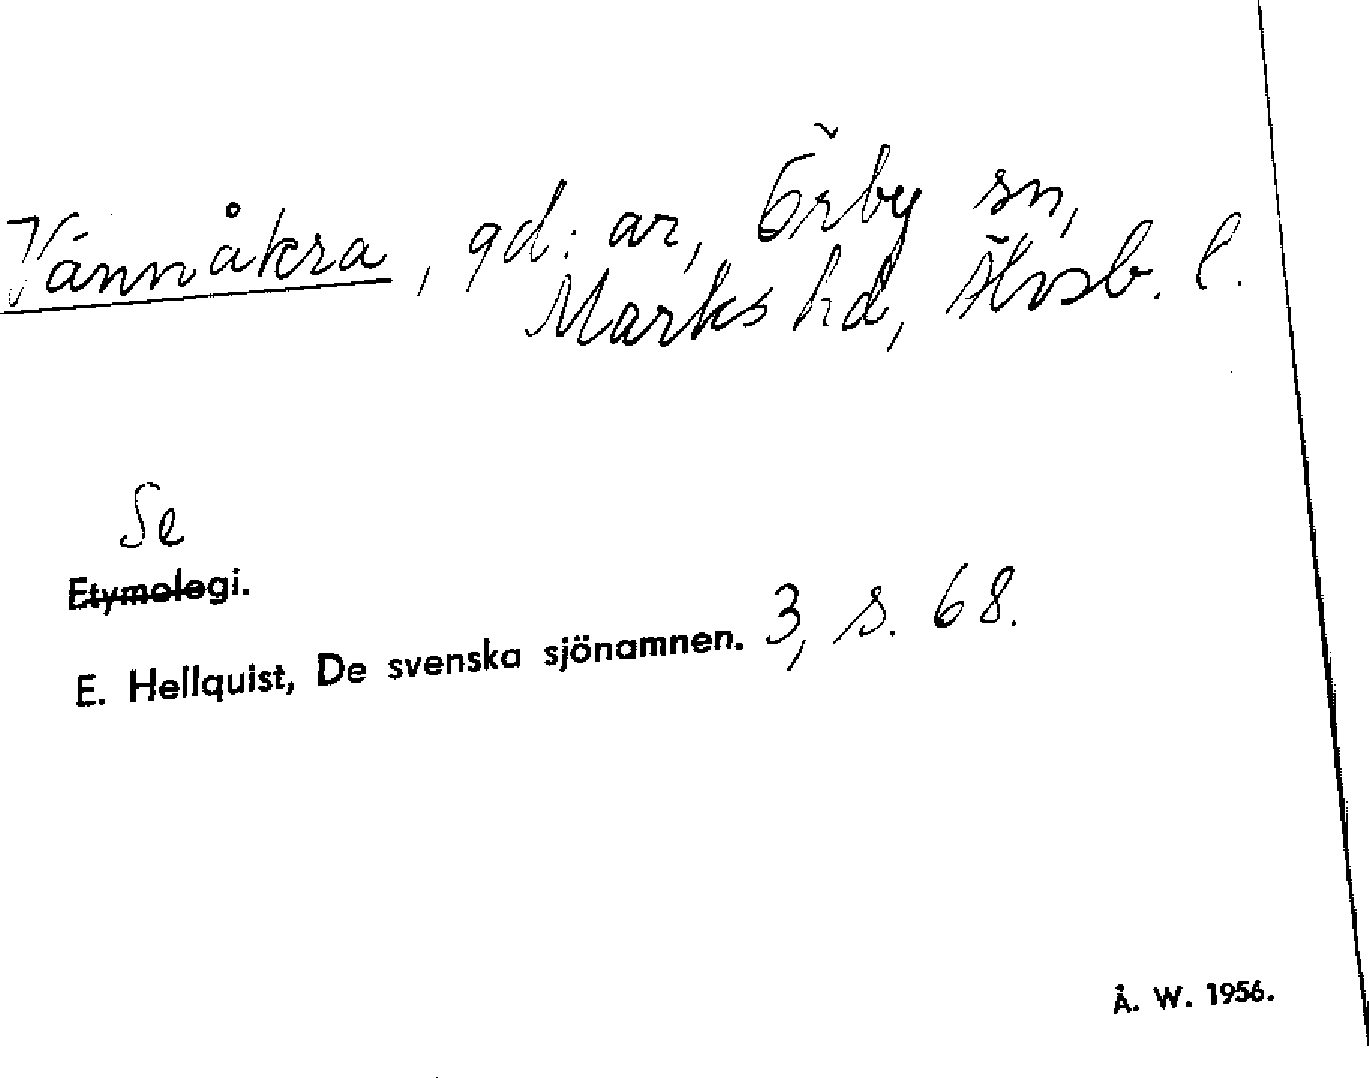 Vännåkra, gd. ar, Örby sn,
Marks hd, Älvsb. l.
Se
Etymologi.
E. Hellquist, De svenska sjönamnen. 3, s. 68.
Å. W. 1956.